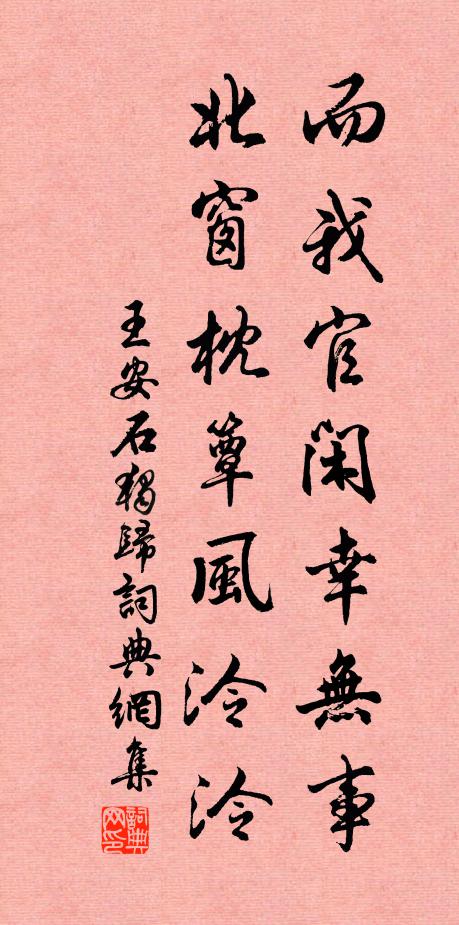 而我官閑幸無事
北窗枕簟風泠泠
王安石獨歸詞典網集
詞典网印